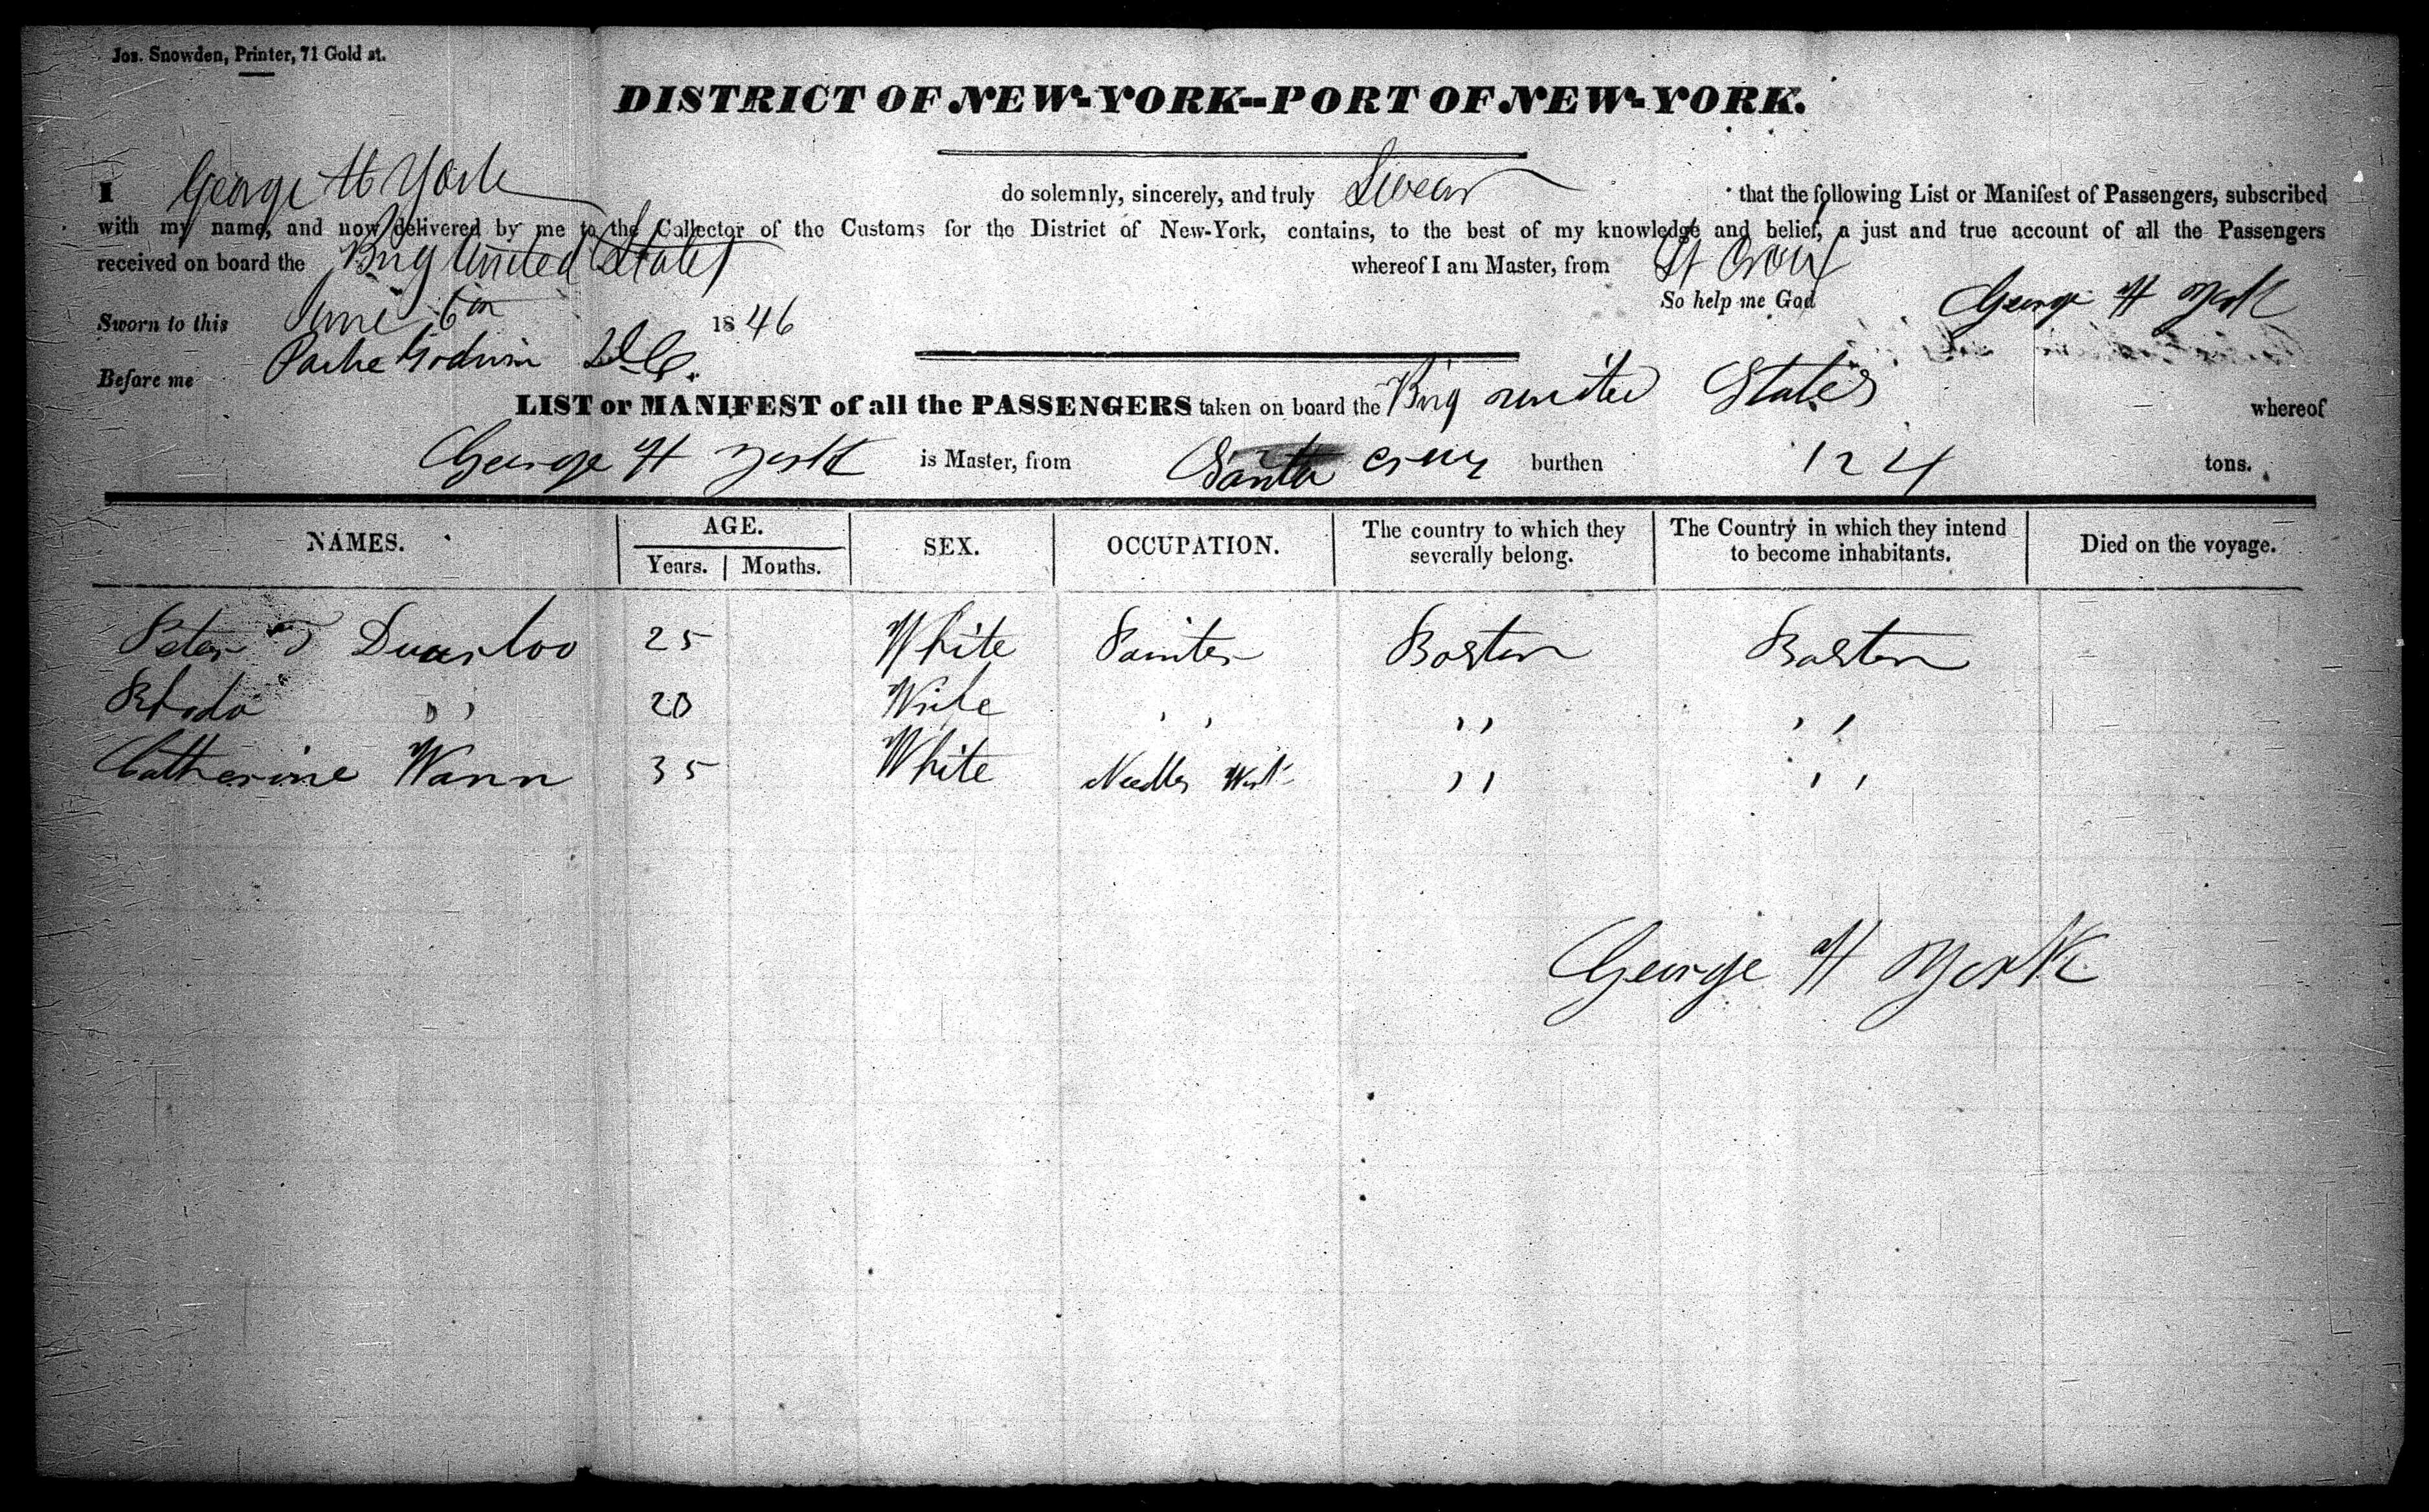 Jos. Snowden, Printer, 71 Gold st.
DISTRICT OF NEW-YORK--PORT OF NEW-YORK.
I George H York do solemnly, sincerely, and truly Swear that the following List or Manifest of Passengers, subscribed
with my name, and now delivered by me to the Collector of the Customs for the District of New-York, contains, to the best of my knowledge and belief, a just and true account of all the Passengers
received on board the Brig United States whereof I am Master, from St Croix
So help me God George H York
Sworn to this June 6th 1846
Before me Parke Godwin D.C.
LIST or MANIFEST of all the PASSENGERS taken on board the Brig united States whereof
George H York is Master, from Santa Cruz burthen 124 tons.
NAMES. AGE. Years. Months. SEX. OCCUPATION. The country to which they severally belong. The Country in which they intend to become inhabitants. Died on the voyage.
Peter T 25 White Painter Boston Boston
Rhoda " 20 " " "
Catherine Wann 35 White Needle Work " "
George H York